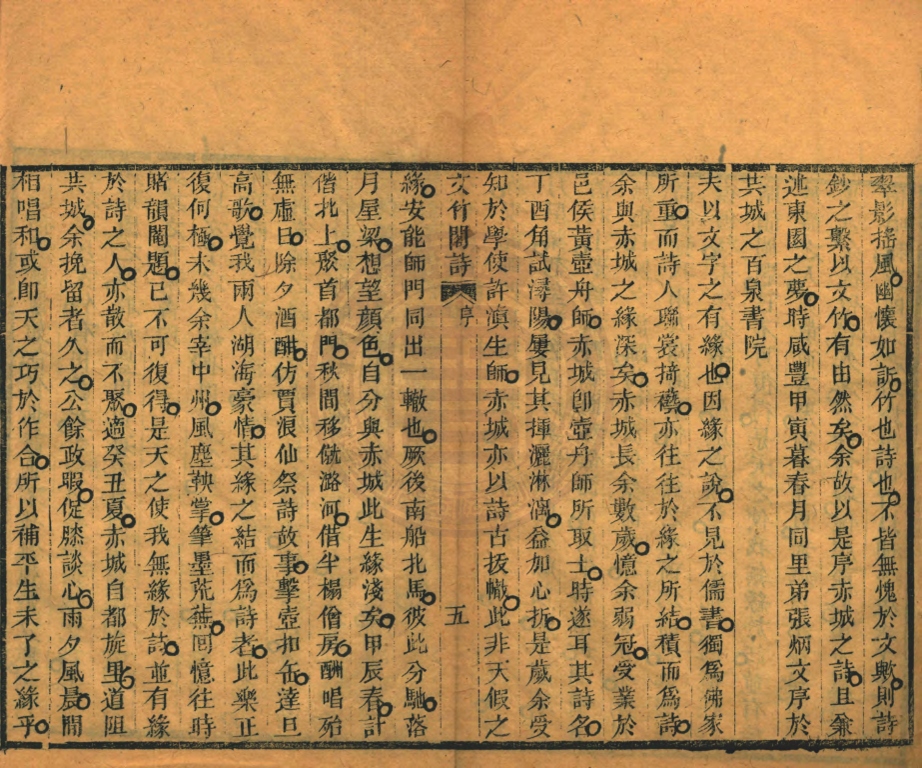 翠影搖風幽懷如訴竹也詩也不皆無愧於文歟則詩
鈔之繫以文竹有由然矣余故以是序赤城之詩且兼
述東園之夢時咸豐甲寅暮春月同里弟張炳文序於
共城之百泉書院
夫以文字之有緣也因緣之說不見於儒書獨為佛家
所重而詩人聯裳掎襼亦往往於緣之所結積而為詩
余與赤城之緣深矣赤城長余數歲憶余弱冠受業於
邑侯黃壺舟師赤城卽壺舟師所取士時遂耳其詩名
丁酉角試潯陽屢見其揮灑淋漓益加心折是歲余受
知於學使許滇生師赤城亦以詩古拔轍此非天假之
文竹閣詩 序 五
緣安能師門同出一轍也厥後南船北馬彼此分馳落
月屋梁想望顏色自分與赤城此生緣淺矣甲辰春計
偕北上聚首都門秋間移僦潞河借半榻僧房酬唱殆
無虛日除夕酒酣仿賈浪仙祭詩故事擊壺扣缶達旦
高歌覺我兩人湖海豪情其緣之結而為詩者此樂正
復何極未幾余宰中州風塵鞅掌筆墨荒蕪囘憶往時
賭韻鬮題已不可復得是天之使我無緣於詩並有緣
於詩之人亦散而不聚適癸丑夏赤城自都旋里道阻
共城余挽留者久之公餘政暇促膝談心雨夕風晨間
相唱和或卽天之巧於作合所以補平生未了之緣乎